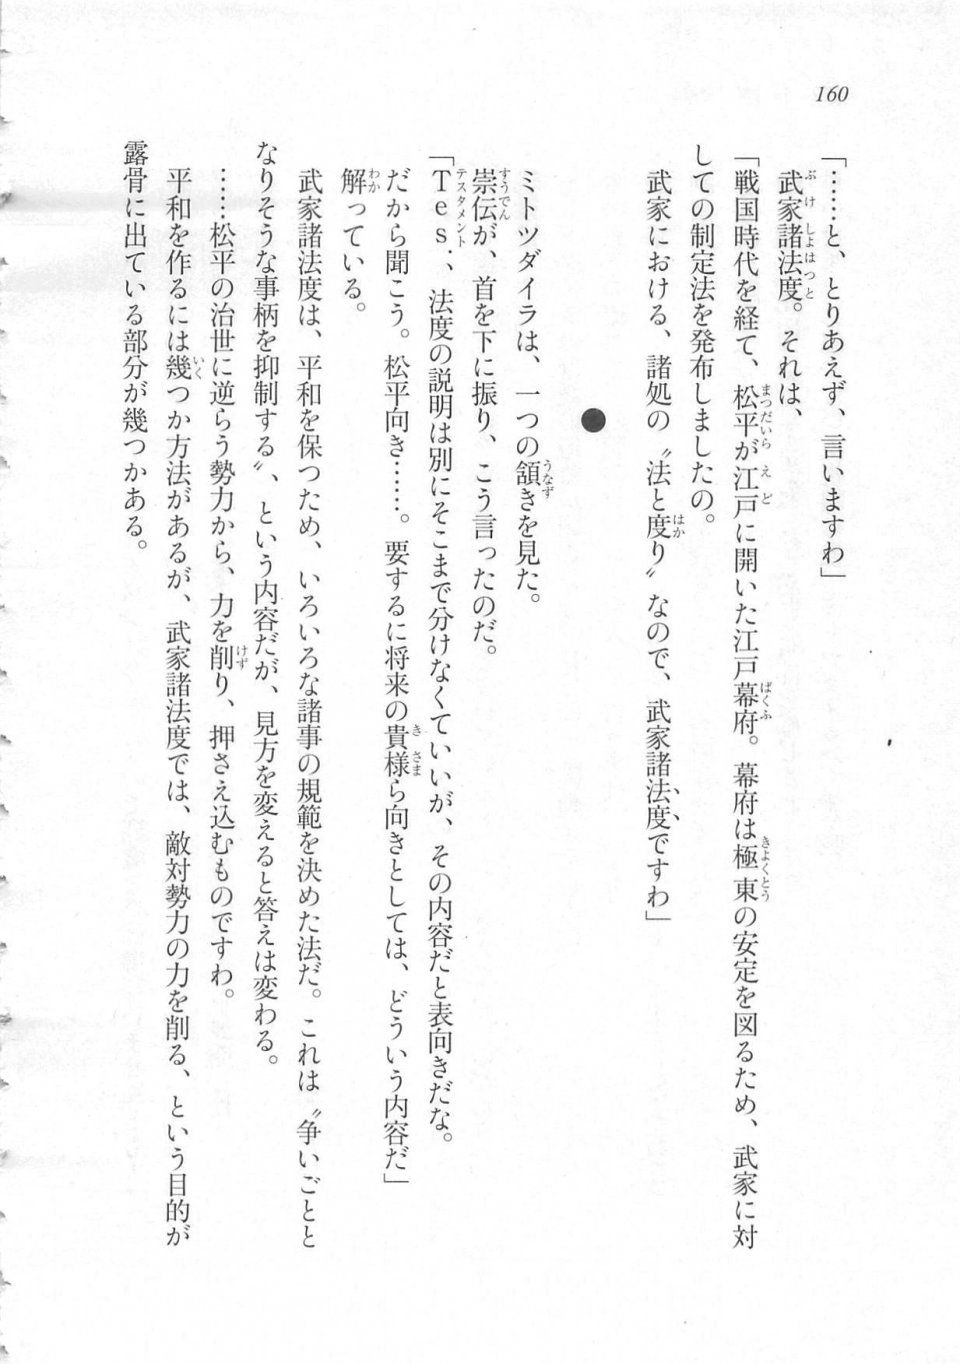 160
「……と、とりあえず、言いますわ」
武家諸法度。それは、
「戦国時代を経て、松平が江戸に開いた江戸幕府。幕府は極東の安定を図るため、武家に対
しての制定法を発布しましたの。
武家における、諸処の〝法と度り〟なので、武家諸法度ですわ」
●
ミトツダイラは、一つの頷きを見た。
崇伝が、首を下に振り、こう言ったのだ。
「Tes.、法度の説明は別にそこまで分けなくていいが、その内容だと表向きだな。
だから聞こう。松平向き……。要するに将来の貴様ら向きとしては、どういう内容だ」
解っている。
武家諸法度は、平和を保つため、いろいろな諸事の規範を決めた法だ。これは〝争いごとと
なりそうな事柄を抑制する〟、という内容だが、見方を変えると答えは変わる。
……松平の治世に逆らう勢力から、力を削り、押さえ込むものですわ。
平和を作るには幾つか方法があるが、武家諸法度では、敵対勢力の力を削る、という目的が
露骨に出ている部分が幾つかある。